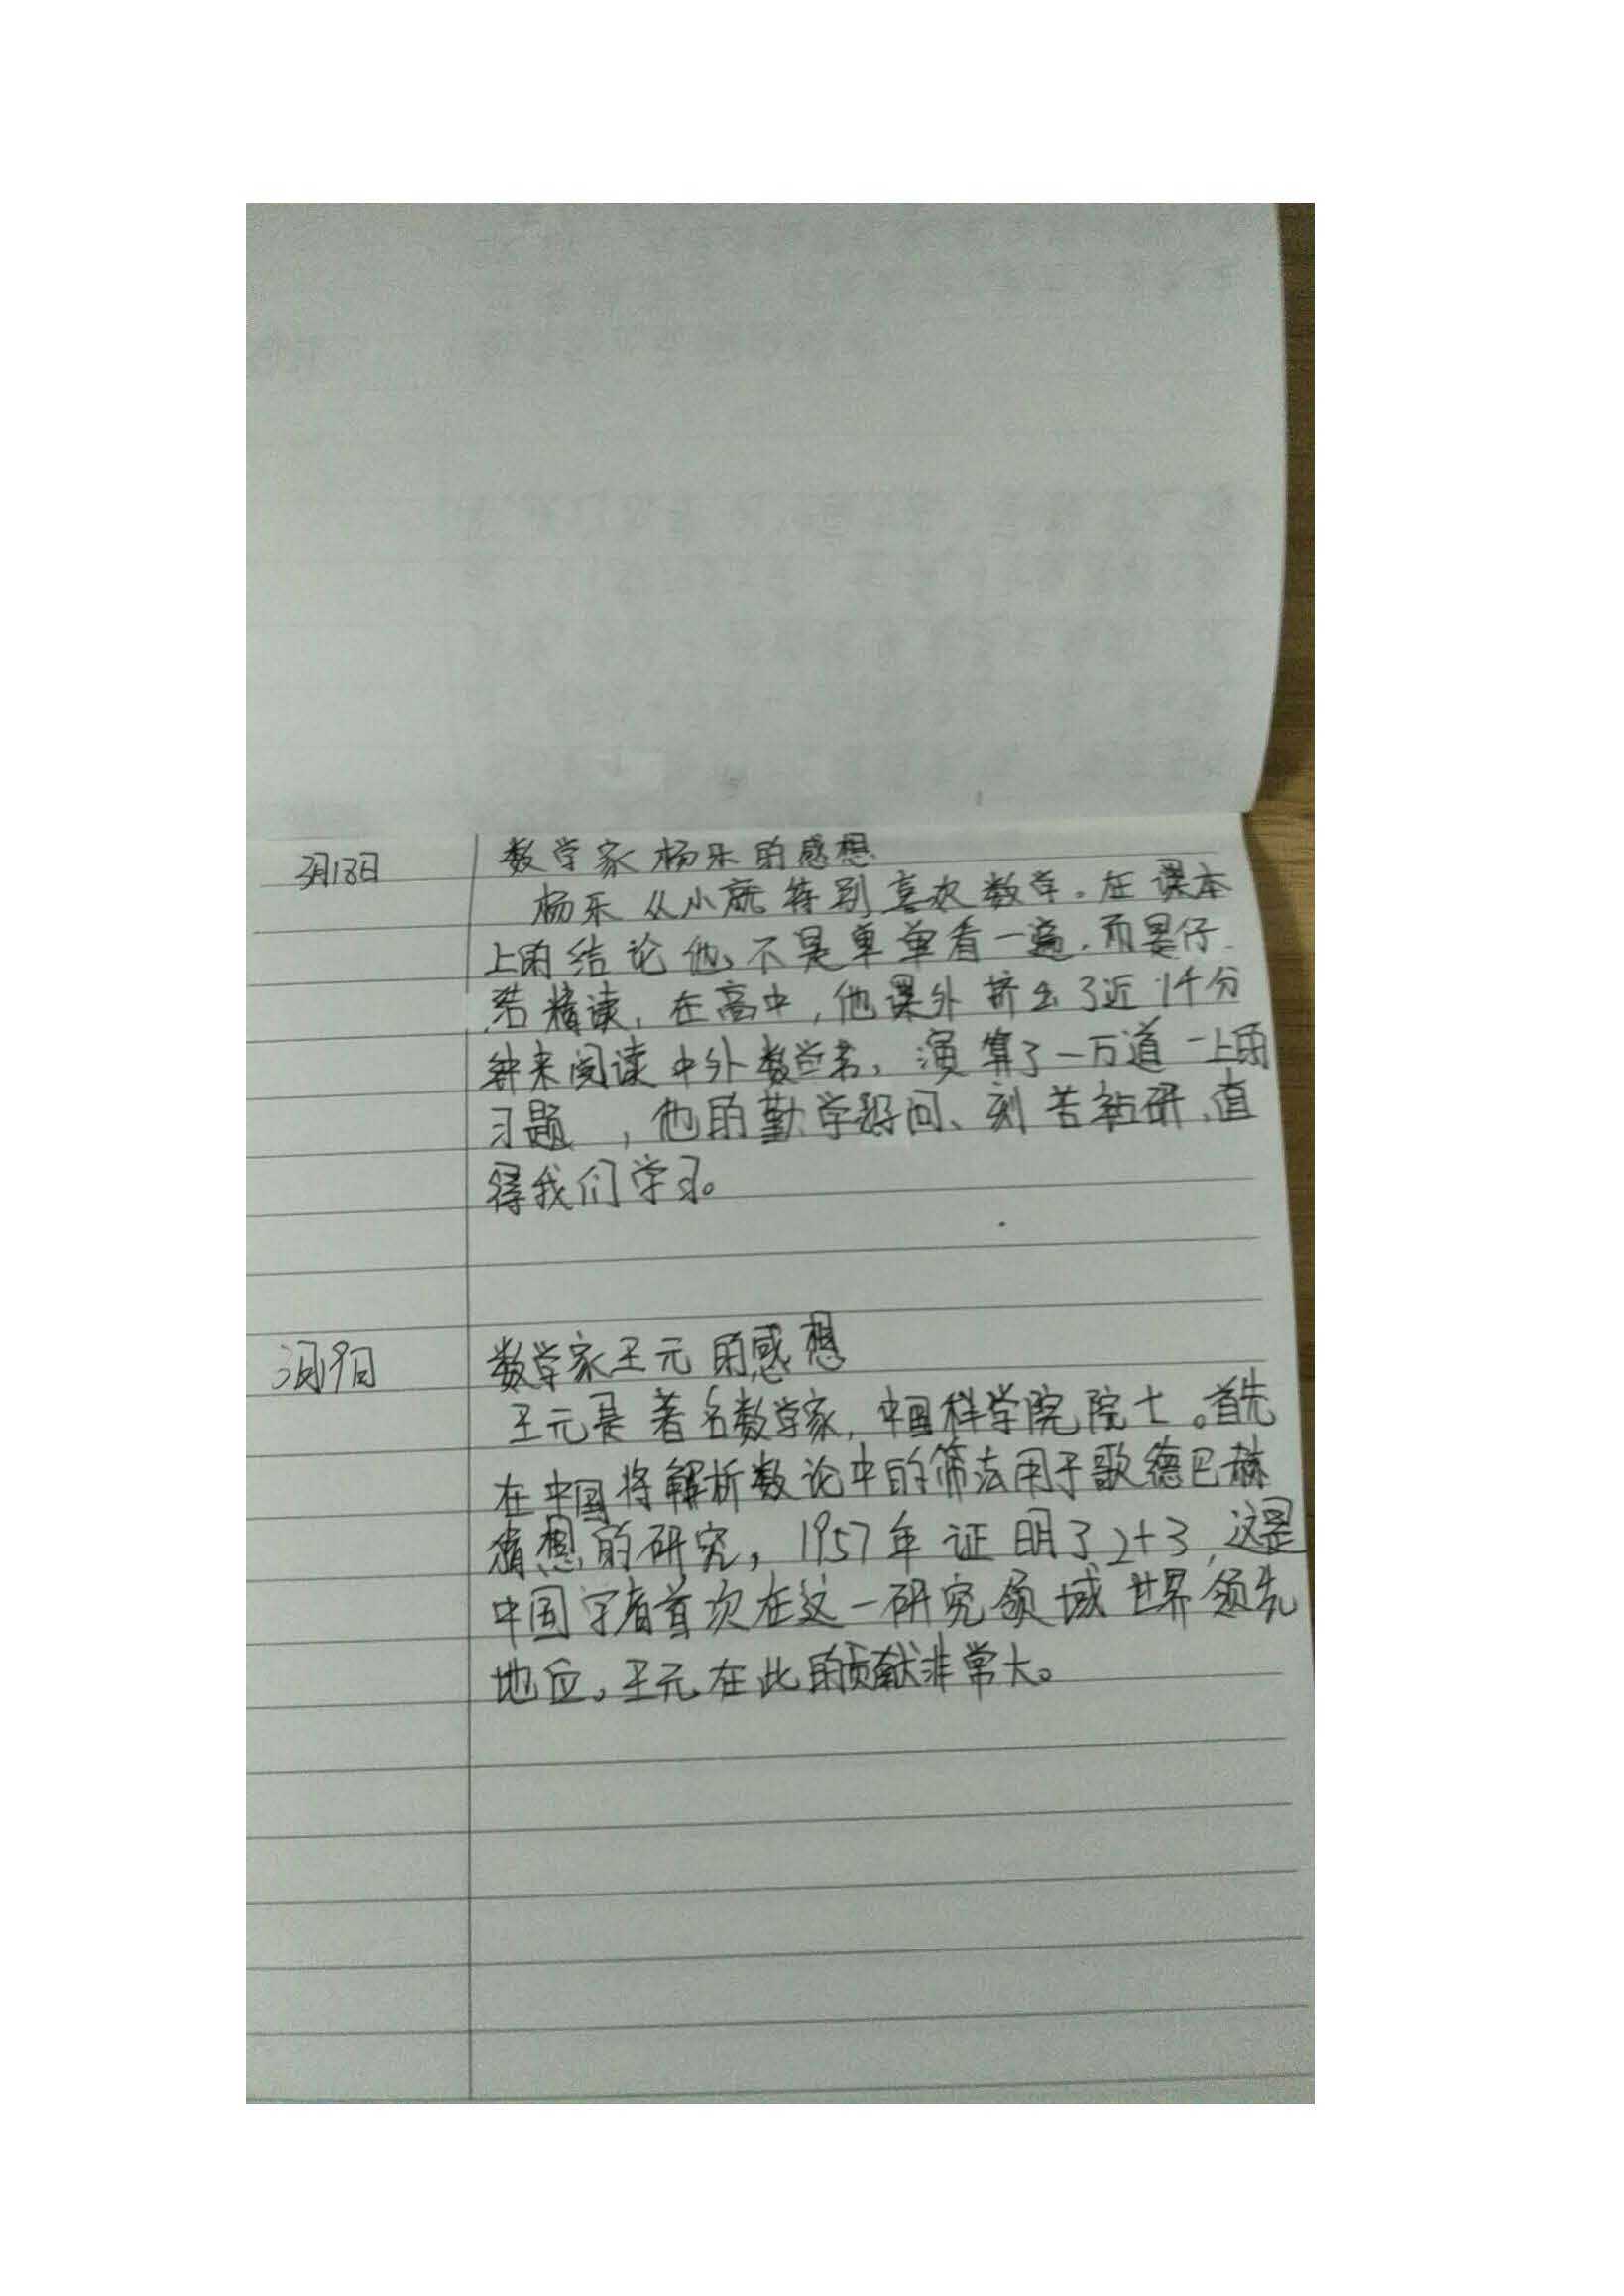 3月18日 数学家杨乐的感想
杨乐从小就特别喜欢数学。在课本
上的结论他不是单单看一遍，而是仔
细精读，在高中，他课外挤出了近1千分
钟来阅读中外数学书，演算了一万道以上的
习题，他的勤学好问、刻苦钻研，值
得我们学习。
3月19日 数学家王元的感想
王元是著名数学家，中国科学院院士。首先
在中国将解析数论中的筛法用于歌德巴赫
猜想的研究，1957年证明了2+3，这是
中国学者首次在这一研究领域世界领先
地位。王元在此的贡献非常大。